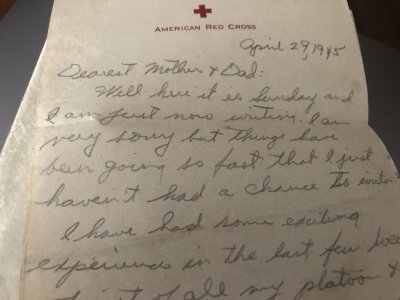 AMERICAN RED CROSS
April 29, 1945
Dearest Mother & Dad:
Well here it is Sunday and
I am just now writing. I am
very sorry but things have
been going so fast that I just
haven't had a chance to write
I have had some exciting
experience in the last few
of all my platoon &